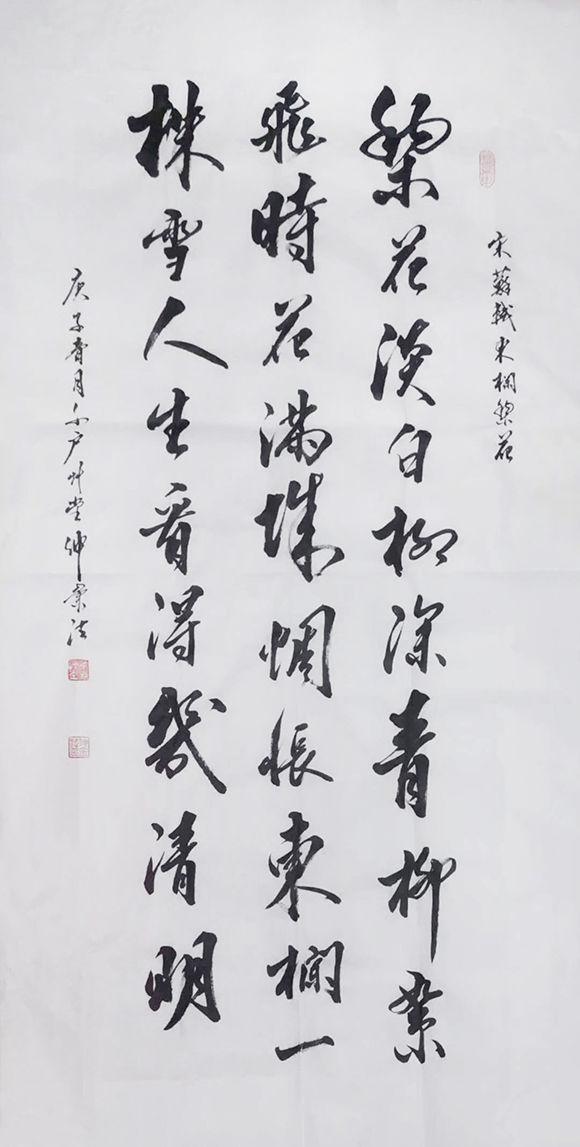 宋蘇軾東欄梨花
梨花淡白柳深青柳絮
飛時花滿城惆悵東欄一
株雪人生看得幾清明
庚子春月